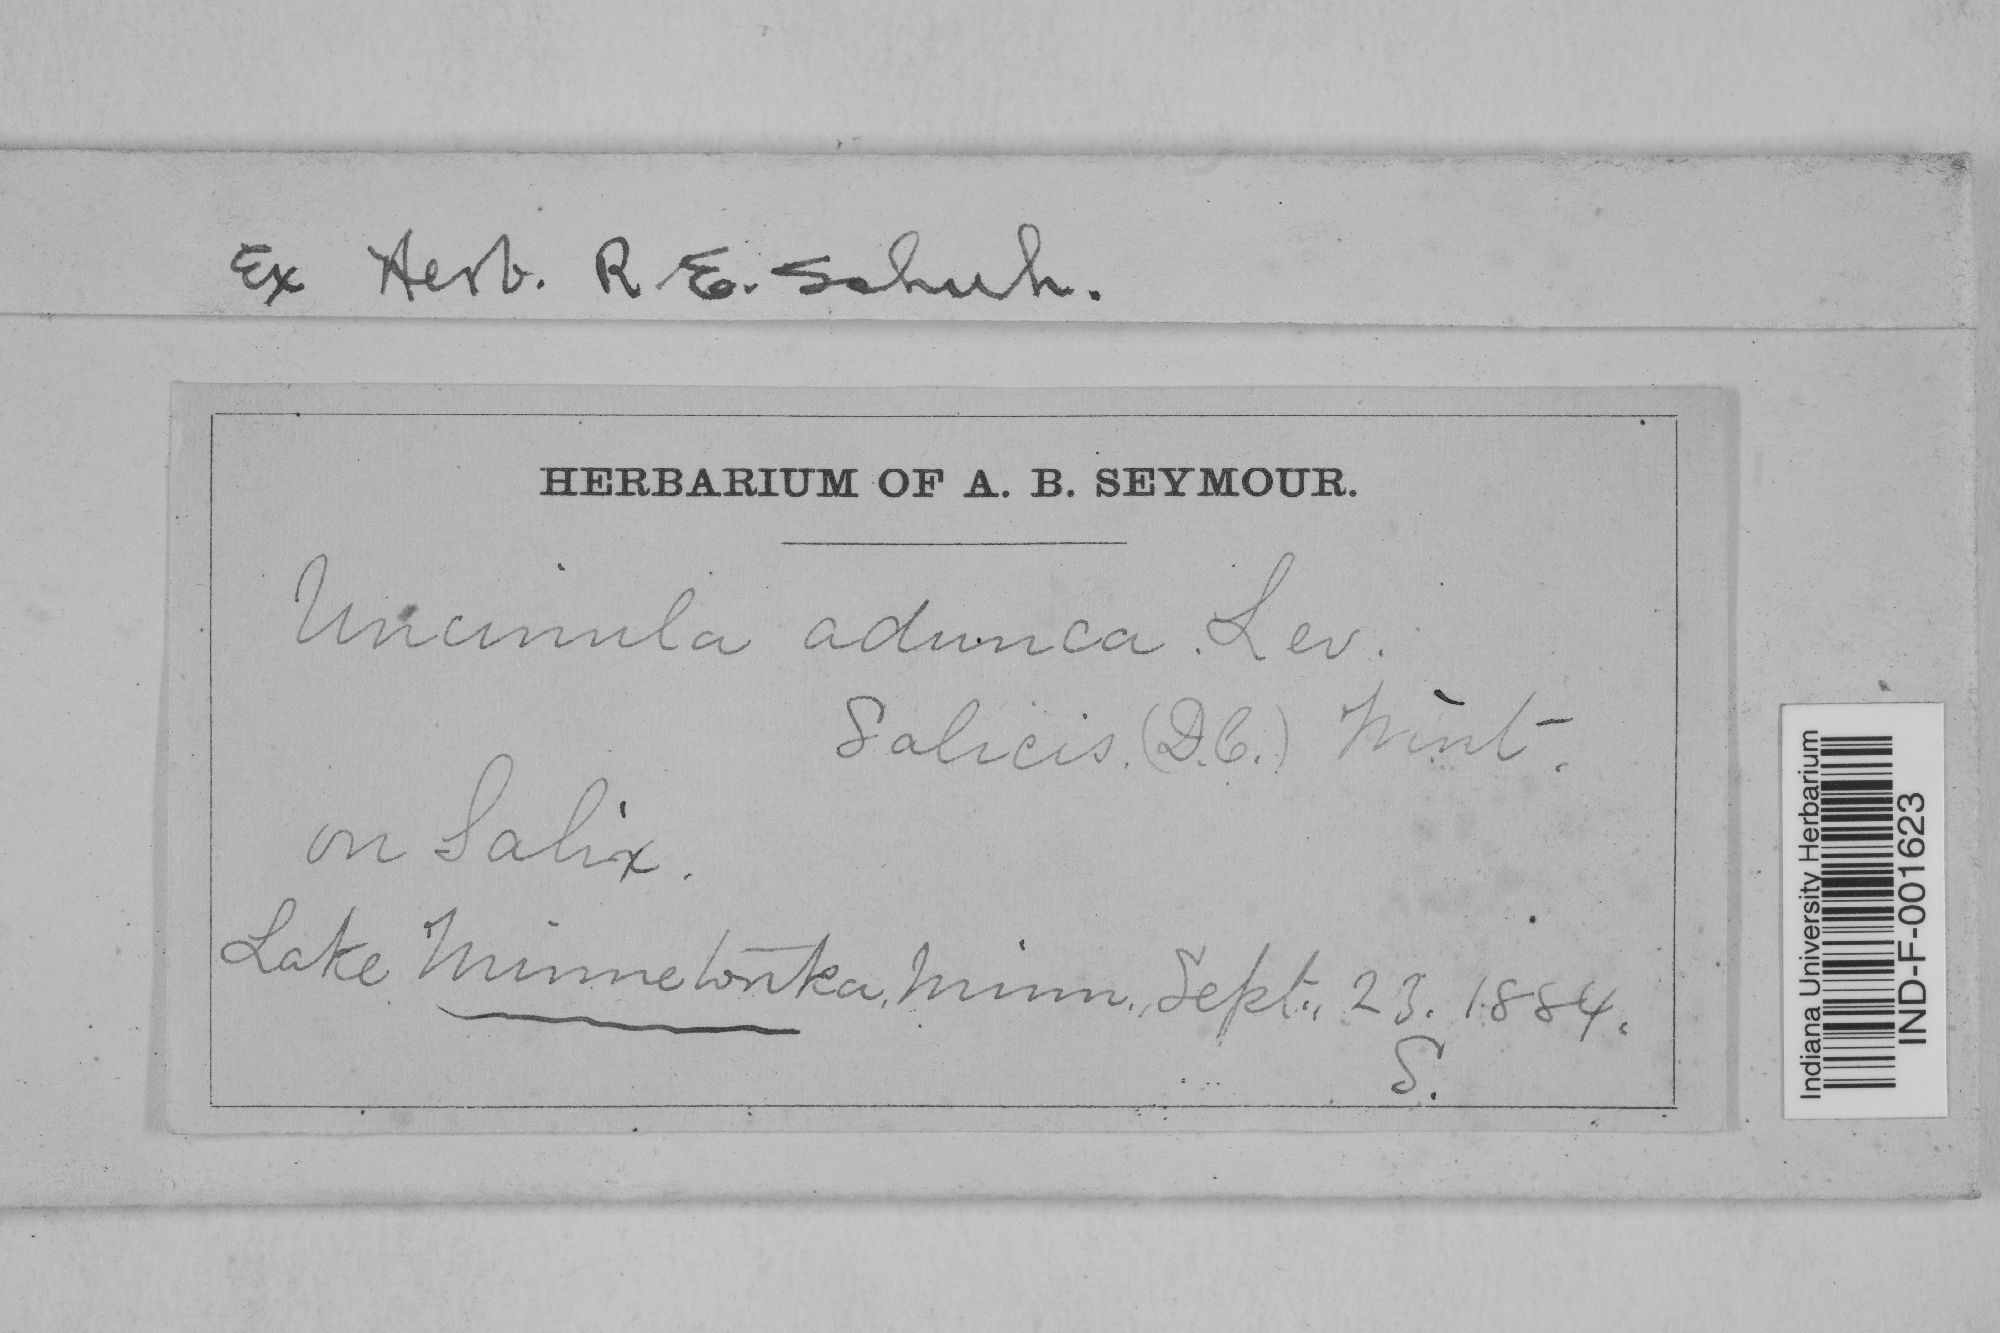 Ex Herb. R. E. Schuh.
HERBARIUM OF A. B. SEYMOUR.
Uncinula adunca. Lev.
Salicis. (D.C.) Wint.
on Salix.
Lake Minnetonka, Minn., Sept., 23. 1884.
S.
Indiana University Herbarium
IND-F-001623